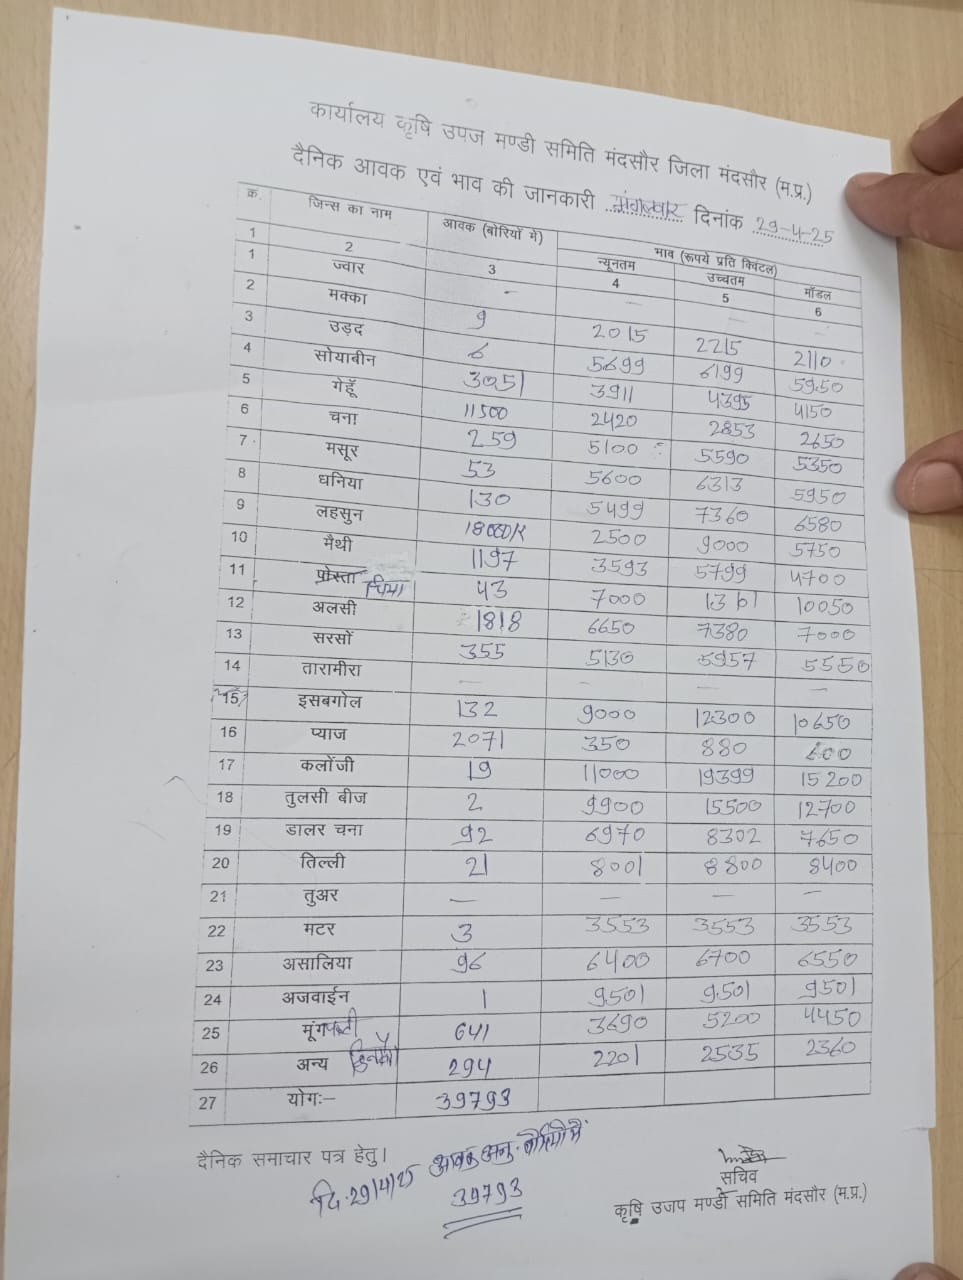 कार्यालय कृषि उपज मण्डी समिति मंदसौर जिला मंदसौर (म.प्र.)
दैनिक आवक एवं भाव की जानकारी मंगलवार दिनांक 29-4-25
क्र. जिन्स का नाम आवक (बोरियों में) भाव (रूपये प्रति क्विंटल)
न्यूनतम उच्चतम मॉडल
1 2 3 4 5 6
1 ज्वार - - - -
2 मक्का 9 2015 2215 2110
3 उड़द 6 5699 6199 5950
4 सोयाबीन 3051 3911 4395 4150
5 गेहूँ 11500 2420 2853 2650
6 चना 259 5100 5590 5350
7 मसूर 53 5600 6313 5950
8 धनिया 130 5499 7360 6580
9 लहसुन 18000 2500 9000 5750
10 मैथी 1197 3593 5799 4700
11 पोस्ता चिया 43 7000 10050
12 अलसी 1818 6650 7380 7000
13 सरसों 355 5130 5957 5550
14 तारामीरा - - - -
15 इसबगोल 132 9000 12300 10650
16 प्याज 2071 350 880 600
17 कलोंजी 19 11000 19399 15200
18 तुलसी बीज 2 9900 15500 12700
19 डालर चना 92 6970 8302 7650
20 तिल्ली 21 8001 8800 8400
21 तुअर - - - -
22 मटर 3 3553 3553 3553
23 असालिया 96 6400 6700 6550
24 अजवाईन 1 9501 9501 9501
25 मूंगफली 641 3690 5200 4450
26 अन्य 294 2201 2535 2360
27 योगः– 39793
दैनिक समाचार पत्र हेतु।
दि. 29/4/25 आवक अनु. बोरियों में
39793
सचिव
कृषि उजप मण्डी समिति मंदसौर (म.प्र.)